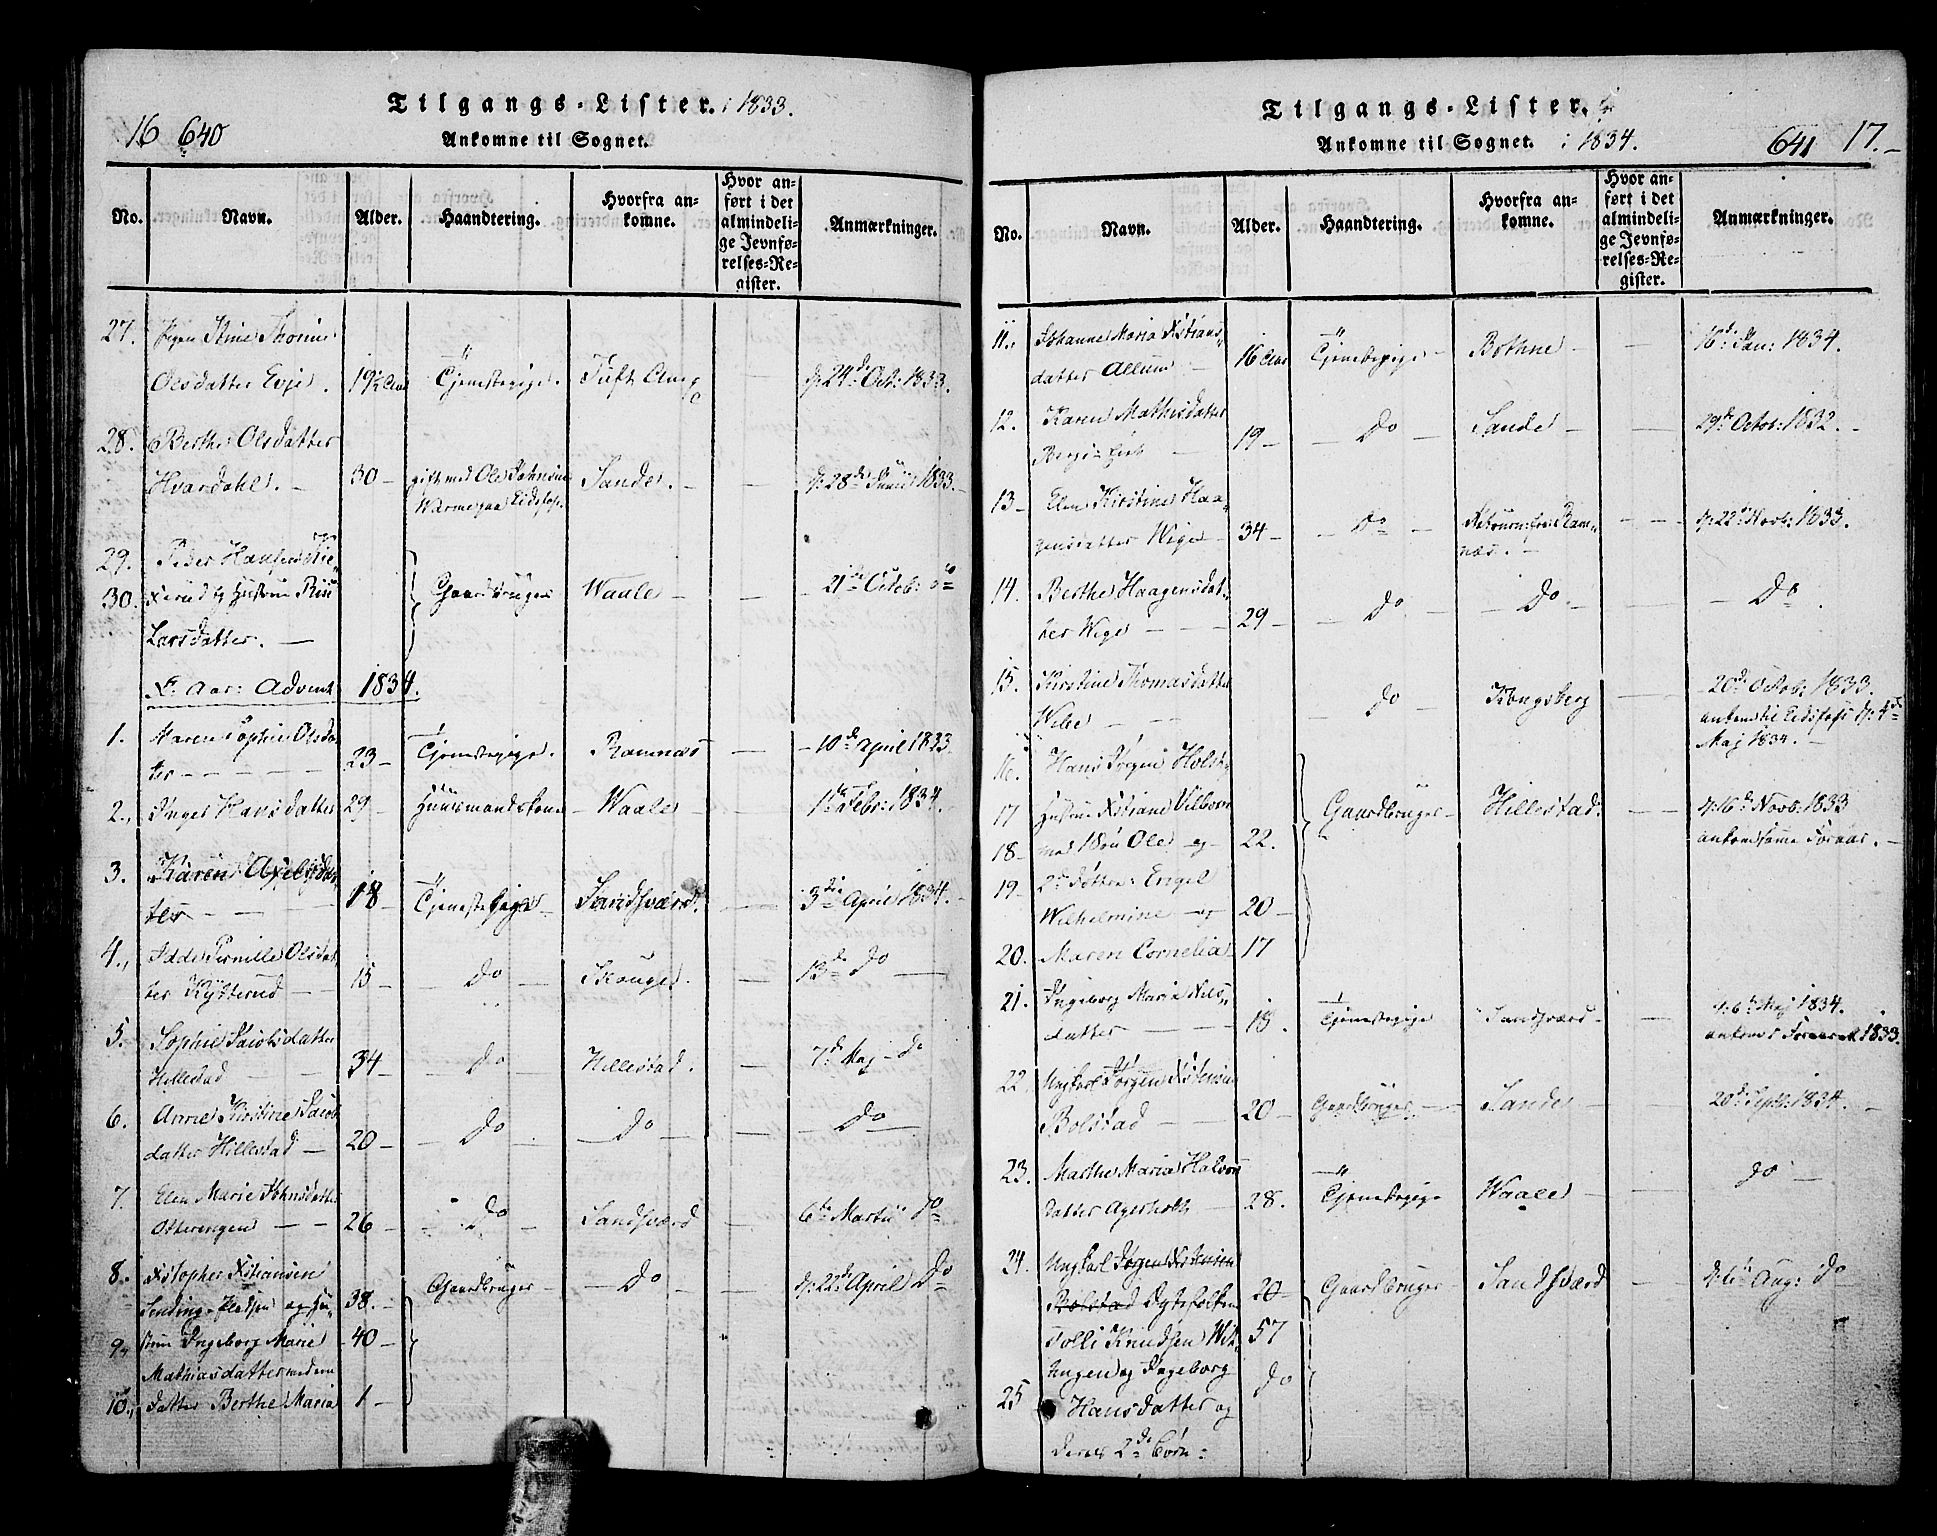 16 640
Tilgangs-Lister. i 1833.
Ankomne til Sognet.
No. Navn. Alder. Haandtering. Hvorfra ankomne. Hvor anført i det almindelige Jevnførelses-Register. Anmærkninger.
27. Pigen Stine Thorine
Olsdatter Evje. 19½ Aar Tjenestepige. Tuft Ann. d: 24de Oct: 1833.
28. Berthe Olsdatter
Hvardahl. 30 gift med Ole Johnsen Sande. d: 28de Junii 1833.
Warme paa Eidsfos.
29. Peder Hansen
30. og Hustrue
Larsdatter. Gaardbruger Waale 21de Octob: do
K: Aar: Advent 1834.
1. Maren Sophie Olsdat
ter 23 Tjenestepige. Ramnæs 10de April 1833.
2. Inger Hansdatter 29 Huusmandskone Waale 1de Febr: 1834.
3. Karen Axelsdat
ter 18 Tjenestepige Sandsværd. 3die April 1834.
4. Pernille Olsdat
ter 15 Do Skouger. 13de Do
5. Sophie Jacobsdatter
Hillestad 34 Do Hillestad. 7de Maj Do
6. Anne Kirstine Jacobs
datter Hillestad 20 Do Do Do
7. Elen Marie Johnsdatter
Otterengen 26 Do Sandsværd 6te Martii Do
8. Xstopher Xstiansen
og Hu 38. Gaardbruger Do d: 22de April Do
9. strue Ingeborg Marie 40
Mathiasdatter med en
10. datter Berthe Maria 1
Tilgangs-Lister.
Ankomne til Sognet. i 1834.
641 17.
No. Navn. Alder. Haandtering. Hvorfra ankomne. Hvor anført i det almindelige Jevnførelses-Register. Anmærkninger.
11. Johanne Maria Xstians
datter Allum 16 Aar Tjenestepige Bothne 16de Jan: 1834.
12. Karen Mathisdatter
19 Do Sande 29de Octob: 1832.
13 Elen Kirstine Haa
gensdatter Wige 34 Do Retourn: fra Ram
næs. d: 22de Novb: 1833.
14. Berthe Haagensdat
ter Wige 29 Do Do Do
15. Kirstine Thomasdatter
Wibe Do Kongsberg 20de Octob: 1833.
ankom til Eidsfos d: 4de
Maj 1834.
16. Hans Jørgen Holst
17 Hustrue Xstiane Gaardbruger Hillestad d: 16de Novb: 1833
18 med 1 Søn Ole og 22. ankom samme Foraar.
19. 2de Døttre: Engel
Wilhelmine og 20
20. Maren Cornelia 17
21. Ingeborg Maria Nils
datter 18. Tjenestepige Sandsværd d: 6te Maj 1834.
ankom i Foraaret 1833.
22. Ungkarl Jørgen Xstensen
Bolstad 20 Gaardbruger Sande 20de Septb: 1834.
23. Marthe Maria Halvors
datter Agerholt 28. Tjenestepige Waale do
24. Ungkarl Jørgen Xstensen
Bolstad Ægtefolkene 20 Gaardbruger Sandsværd d: 6te Aug: do
Tolli Knudsen 57
og Ingeborg
25 Hansdatter og do
deres 2de Børn